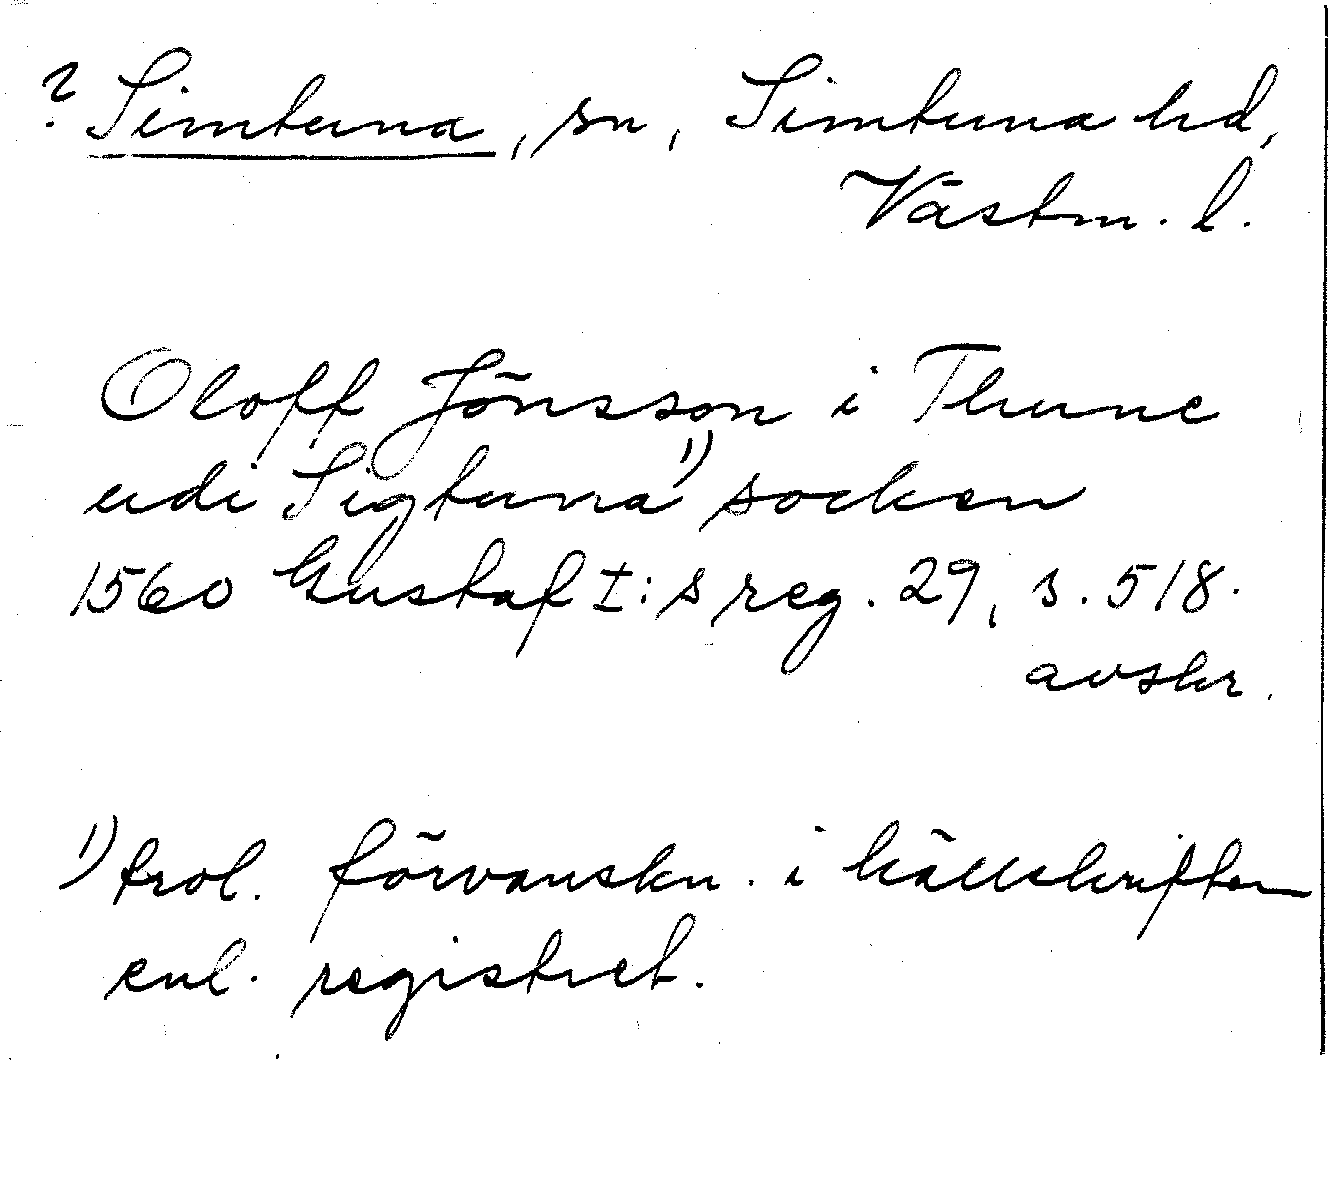 ? Simtuna, sn, Simtuna hd,
Västm. l.
Oloff Jönsson i Thune
udi Sigtuna¹⁾ socken
1560 Gustaf I:s reg. 29, s. 518.
avskr.
¹⁾ trol. förvanskn. i källskriften
enl. registret.